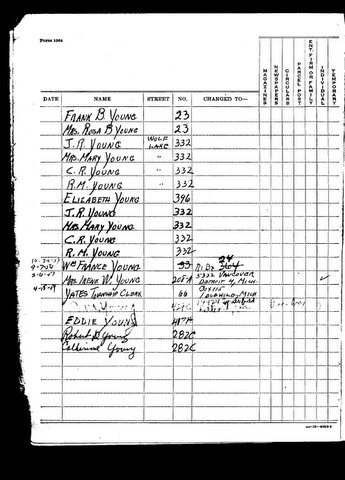 FORM 1564
DATE NAME STREET NO. CHANGED TO— MAGAZINES NEWSPAPERS CIRCULARS PARCEL POST ENT. FIRM OR FAMILY INDIVIDUAL TEMPORARY
FRANK B. YOUNG 23
MRS. ROSA B YOUNG 23
J. R. YOUNG WOLF LAKE 332
MRS. MARY YOUNG " 332
C. R. YOUNG " 332
R. M. YOUNG " 332
ELIZABETH YOUNG 396
J. R. YOUNG 332
MRS. MARY YOUNG 332
C. R. YOUNG 332
R. M. YOUNG 332
WM FRANCE YOUNG 33 Rt Bx 24
MRS. IRENE W. YOUNG 208-A 5322 VANCOUVER DETROIT 4, MICH ✓
YATES TOWNSHIP CLERK 66 BOX 115 IDLEWILD, MICH
EDDIE YOUNG
Robert D Young 282C
Catherine Young 282C